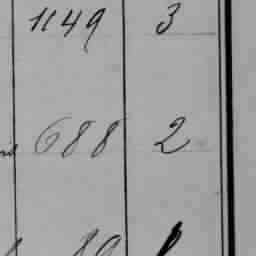 1149 3
688 2